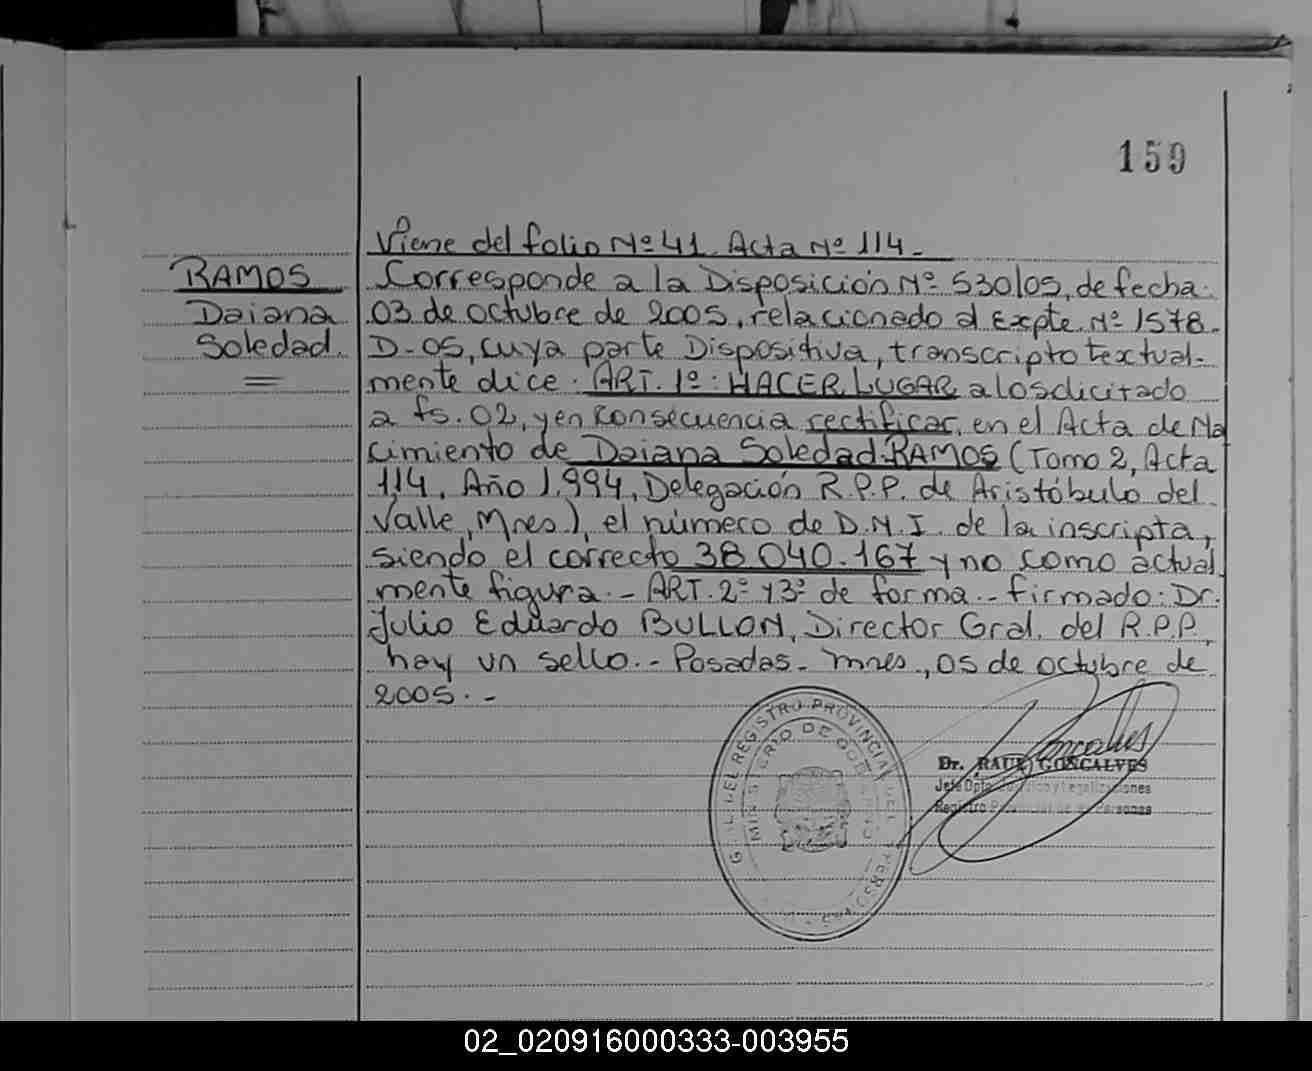 159
Viene del folio Nº 41. Acta Nº 114.-
RAMOS
Daiana
Soledad.
Corresponde a la Disposición Nº 530/05, de fecha:
03 de octubre de 2005, relacionado al Expte. Nº 1578-
D-05, cuya parte Dispositiva, transcripto textual-
mente dice: ART. 1º: HACER LUGAR a lo sdicitado
a fs. 02, y en consecuencia rectificar, en el Acta de Na
cimiento de Daiana Soledad RAMOS (Tomo 2, Acta
114, Año 1.994, Delegación R.P.P. de Aristóbulo del
Valle, Mnes), el número de D.N.I. de la inscripta,
siendo el correcto 38.040.167 y no como actual
mente figura.- ART. 2º y 3º de forma.- firmado: Dr.
Julio Eduardo BULLON, Director Gral. del R.P.P.,
hay un sello.- Posadas- Mnes., 05 de octubre de
2005.-
DEL REGISTRO PROVINCIAL DE PERSONAS
MINISTERIO DE GOBIERNO
Dr. RAUL GONCALVES
Jefe Dpto. y Legalizaciones
Registro Provincial de las Personas
02_020916000333-003955